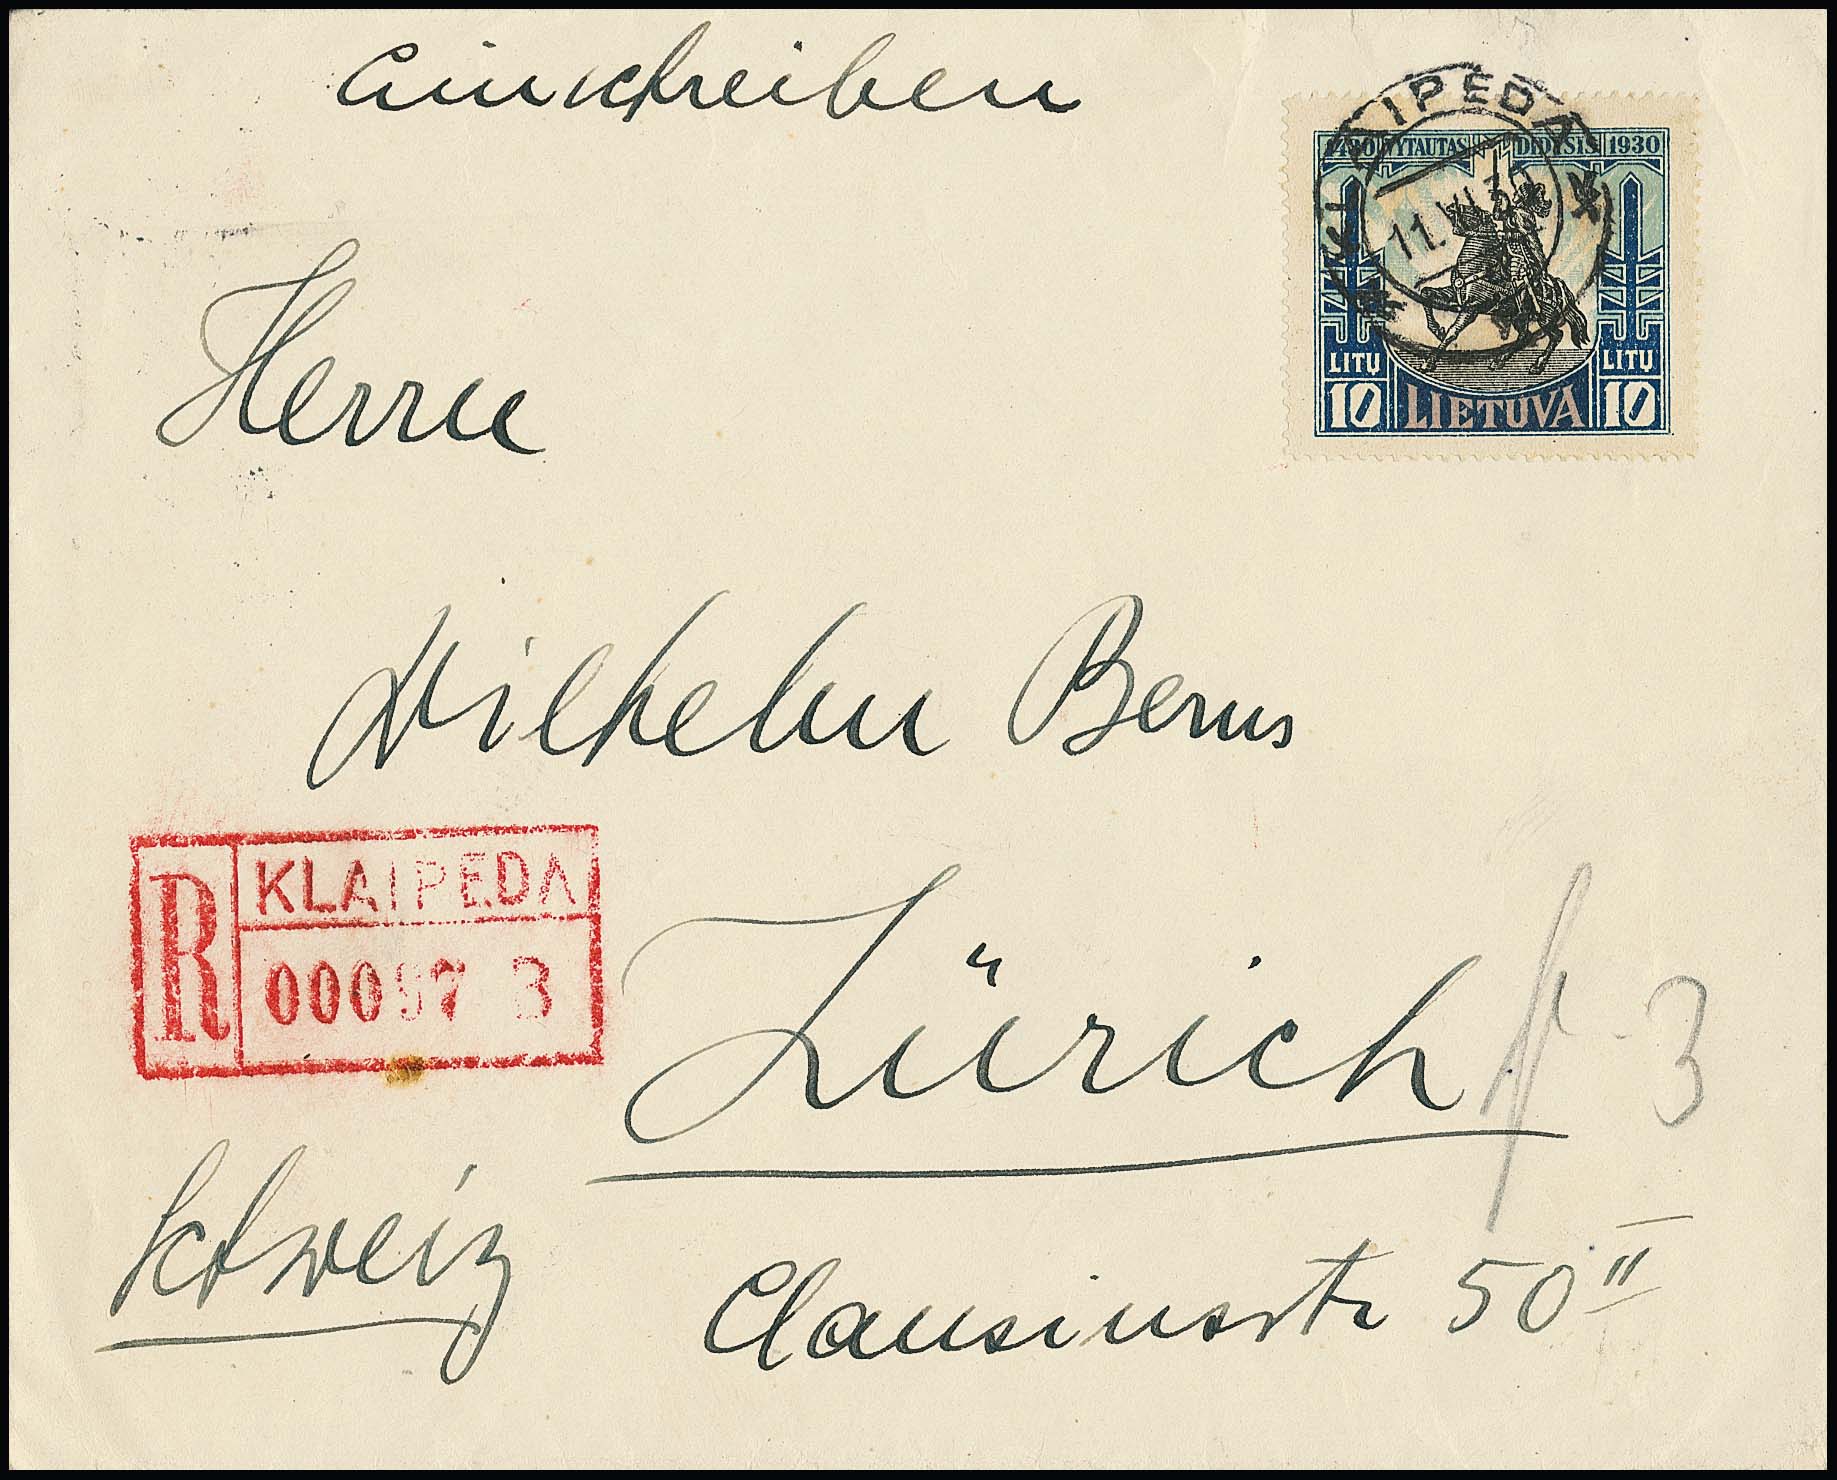 Einschreiben
1430 VYTAUTAS DIDYSIS 1930
KLAIPEDA
11.VII.30
LITŲ LITŲ
10 LIETUVA 10
Herrn
Wilhelm Berns
R KLAIPEDA
00097 3
Zürich
3
Schweiz
Clausiusstr 50 II